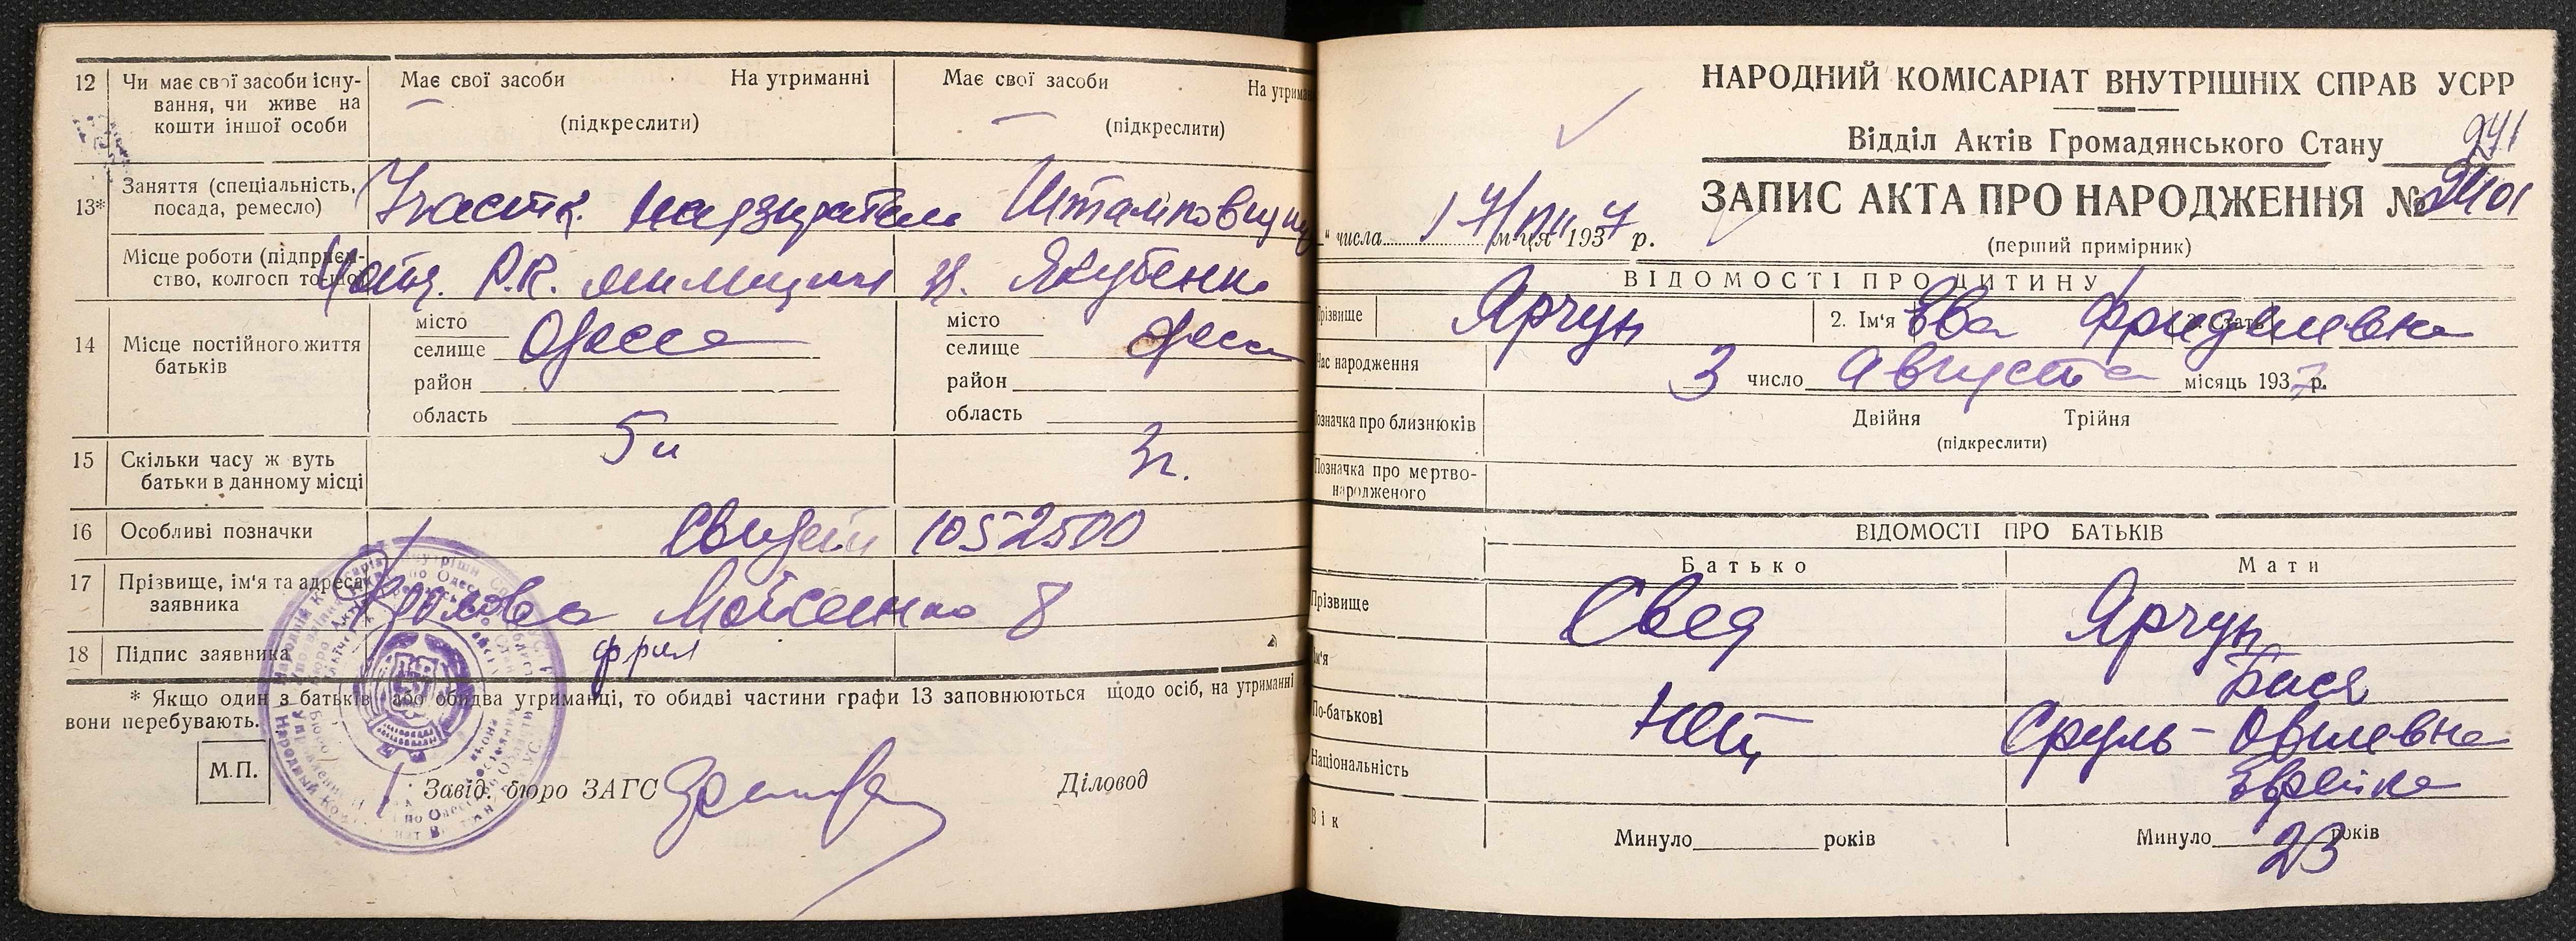 12 Чи має свої засоби існу-
вання, чи живе на
кошти іншої особи
Має свої засоби На утриманні
(підкреслити)
Має свої засоби
(підкреслити)
13* Заняття (спеціальність,
посада, ремесло)
Участк. надзиратель Штамповщиц
Місце роботи (підприєм-
ство, колгосп то-що)
Р.К. милиции
14 Місце постійного життя
батьків
місто
селище Одесса
район
область
місто
селище Одесса
район
область
15 Скільки часу ж вуть
батьки в данному місці
5 л 3 г.
16 Особливі позначки
Свидет 1052500
17 Прізвище, ім'я та адреса
заявника
8
18 Підпис заявника
* Якщо один з батьків або обидва утриманці, то обидві частини графи 13 заповнюються щодо осіб, на утриманні
вони перебувають.
М.П.
Завід. бюро ЗАГС Діловод
НАРОДНИЙ КОМІСАРІАТ ВНУТРІШНІХ СПРАВ УСРР
Відділ Актів Громадянського Стану
241
ЗАПИС АКТА ПРО НАРОДЖЕННЯ №
(перший примірник)
" числа 17/VIII м-ця 1937 р.
ВІДОМОСТІ ПРО ДИТИНУ
Прізвище Ярчун 2. Ім'я Ева Фридилевна 3. Стать
Час народження 3 число Августа місяць 1937 р.
Позначка про близнюків Двійня Трійня
(підкреслити)
Позначка про мертво-
народженого
ВІДОМОСТІ ПРО БАТЬКІВ
Батько Мати
Прізвище Свед Ярчун
Ім'я Бася
По-батькові Нет Сруль-Овшлевна
Національність Еврейка
Вік Минуло років Минуло 23 років